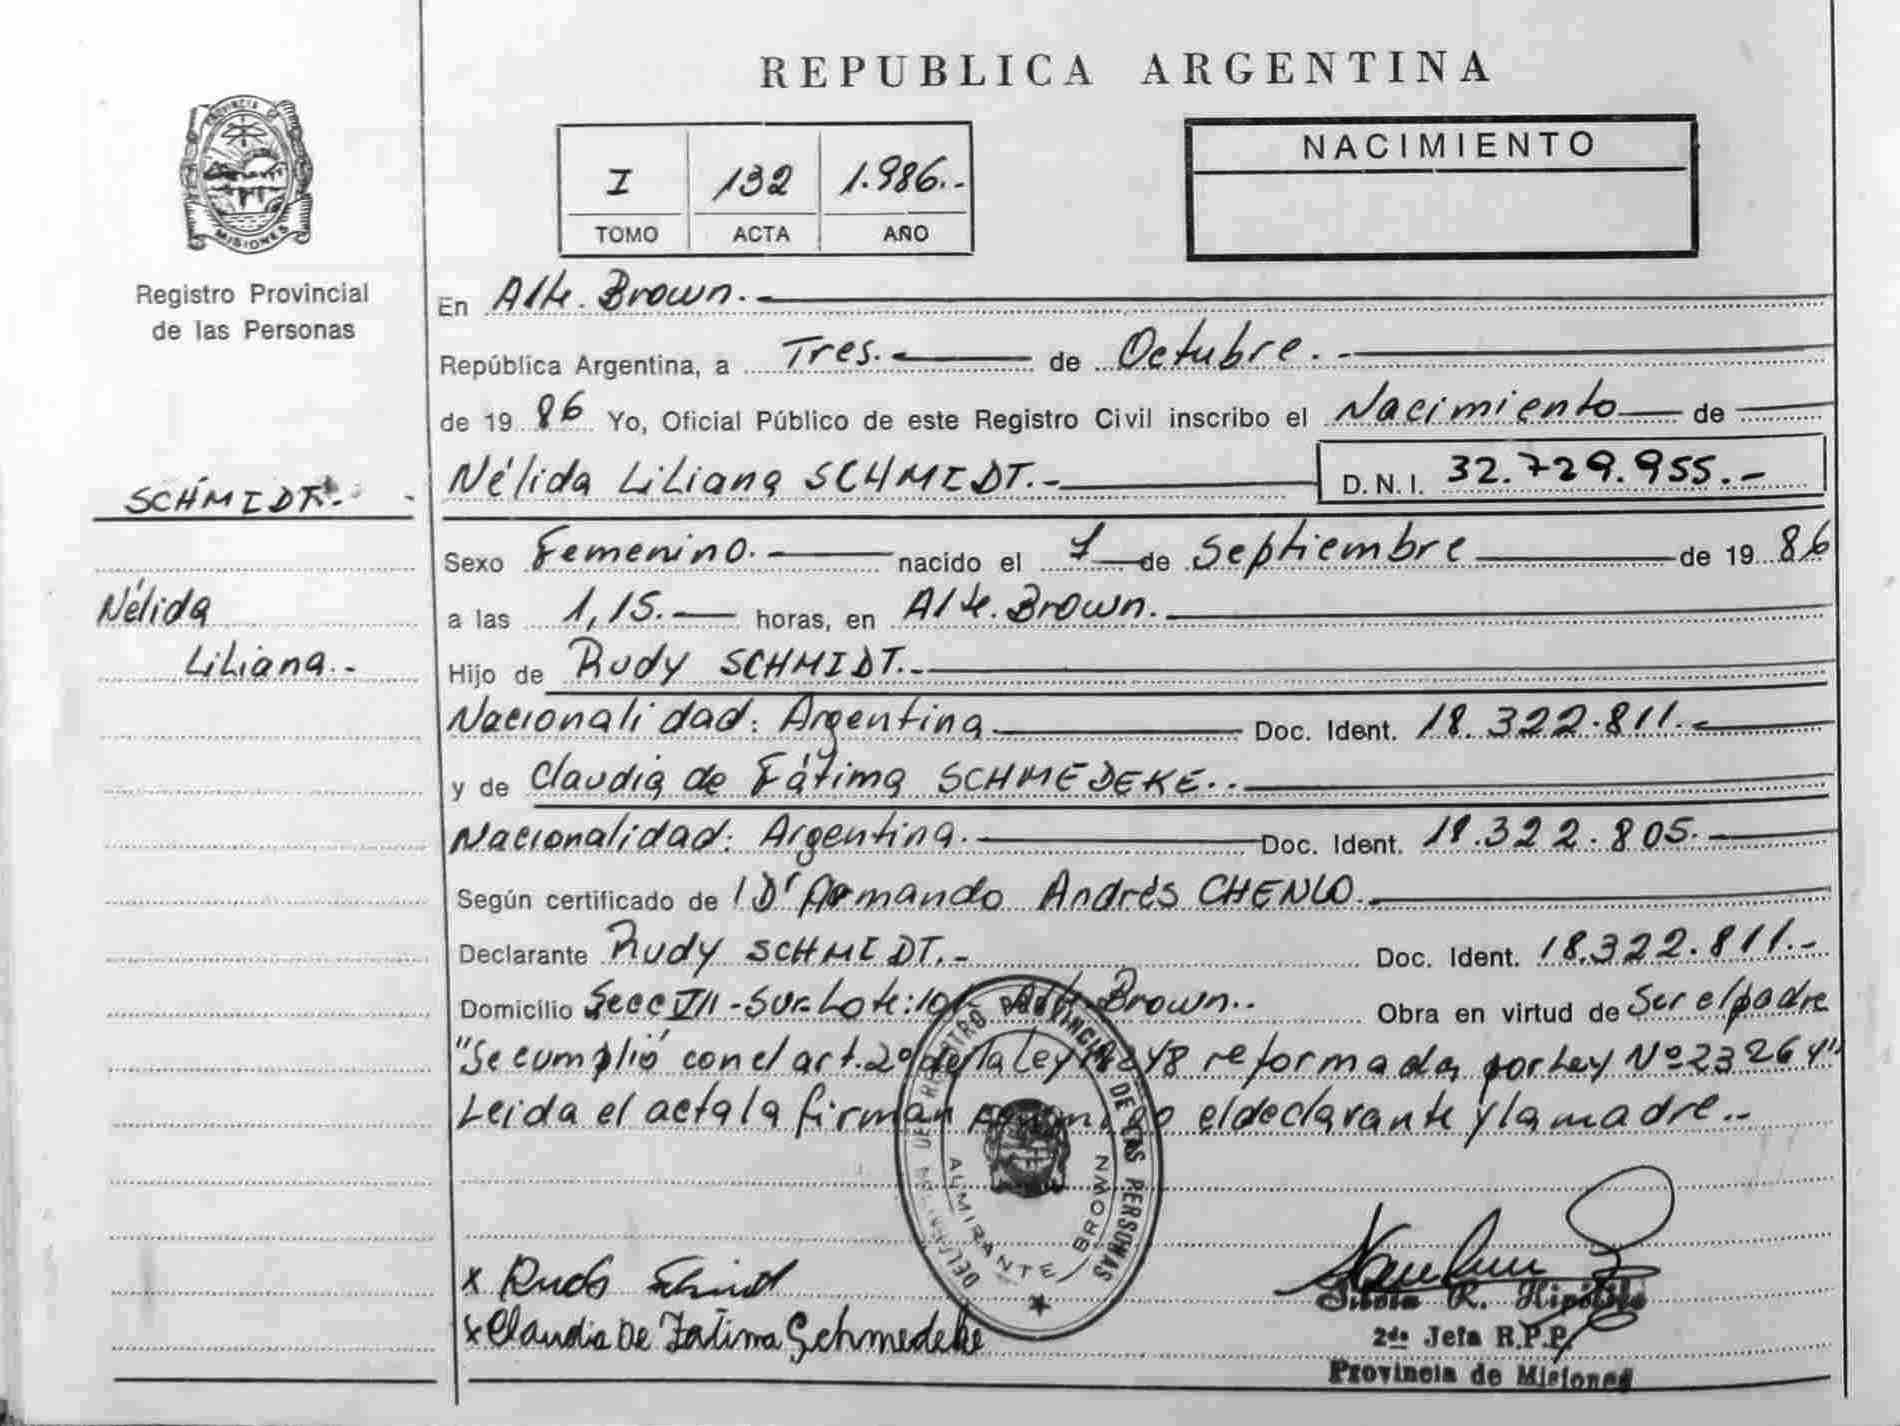 REPUBLICA ARGENTINA
PROVINCIA DE MISIONES
Registro Provincial
de las Personas
I 132 1.986.-
TOMO ACTA AÑO
NACIMIENTO
En Alte. Brown.-
República Argentina, a Tres.- de Octubre.-
de 19 86 Yo, Oficial Público de este Registro Civil inscribo el Nacimiento de
SCHMIDT.-
Nélida Liliana SCHMIDT.- D.N.I. 32.729.955.-
Sexo Femenino.- nacido el 7 de Septiembre de 19 86
Nélida
a las 1,15.- horas, en Alte. Brown.-
Liliana.-
Hijo de Rudy SCHMIDT.-
Nacionalidad: Argentina.- Doc. Ident. 18.322.811.-
y de Claudia de Fátima SCHMEDEKE.-
Nacionalidad: Argentina.- Doc. Ident. 18.322.805.-
Según certificado de Armando Andrés CHENLO.-
Declarante Rudy SCHMIDT.- Doc. Ident. 18.322.811.-
Domicilio Secc VII - Sur-Lote: Brown.. Obra en virtud de Ser el padre
"Se cumplió con el art. 2º de la Ley reformada por Ley Nº 23264"
Leida el acta la firman el declarante y la madre..
DEL REGISTRO PROVINCIAL DE LAS PERSONAS
ALMIRANTE BROWN
x
x Claudia De Fátima Schmedeke
R. Hipólito
2da Jefa R.P.P.
Provincia de Misiones